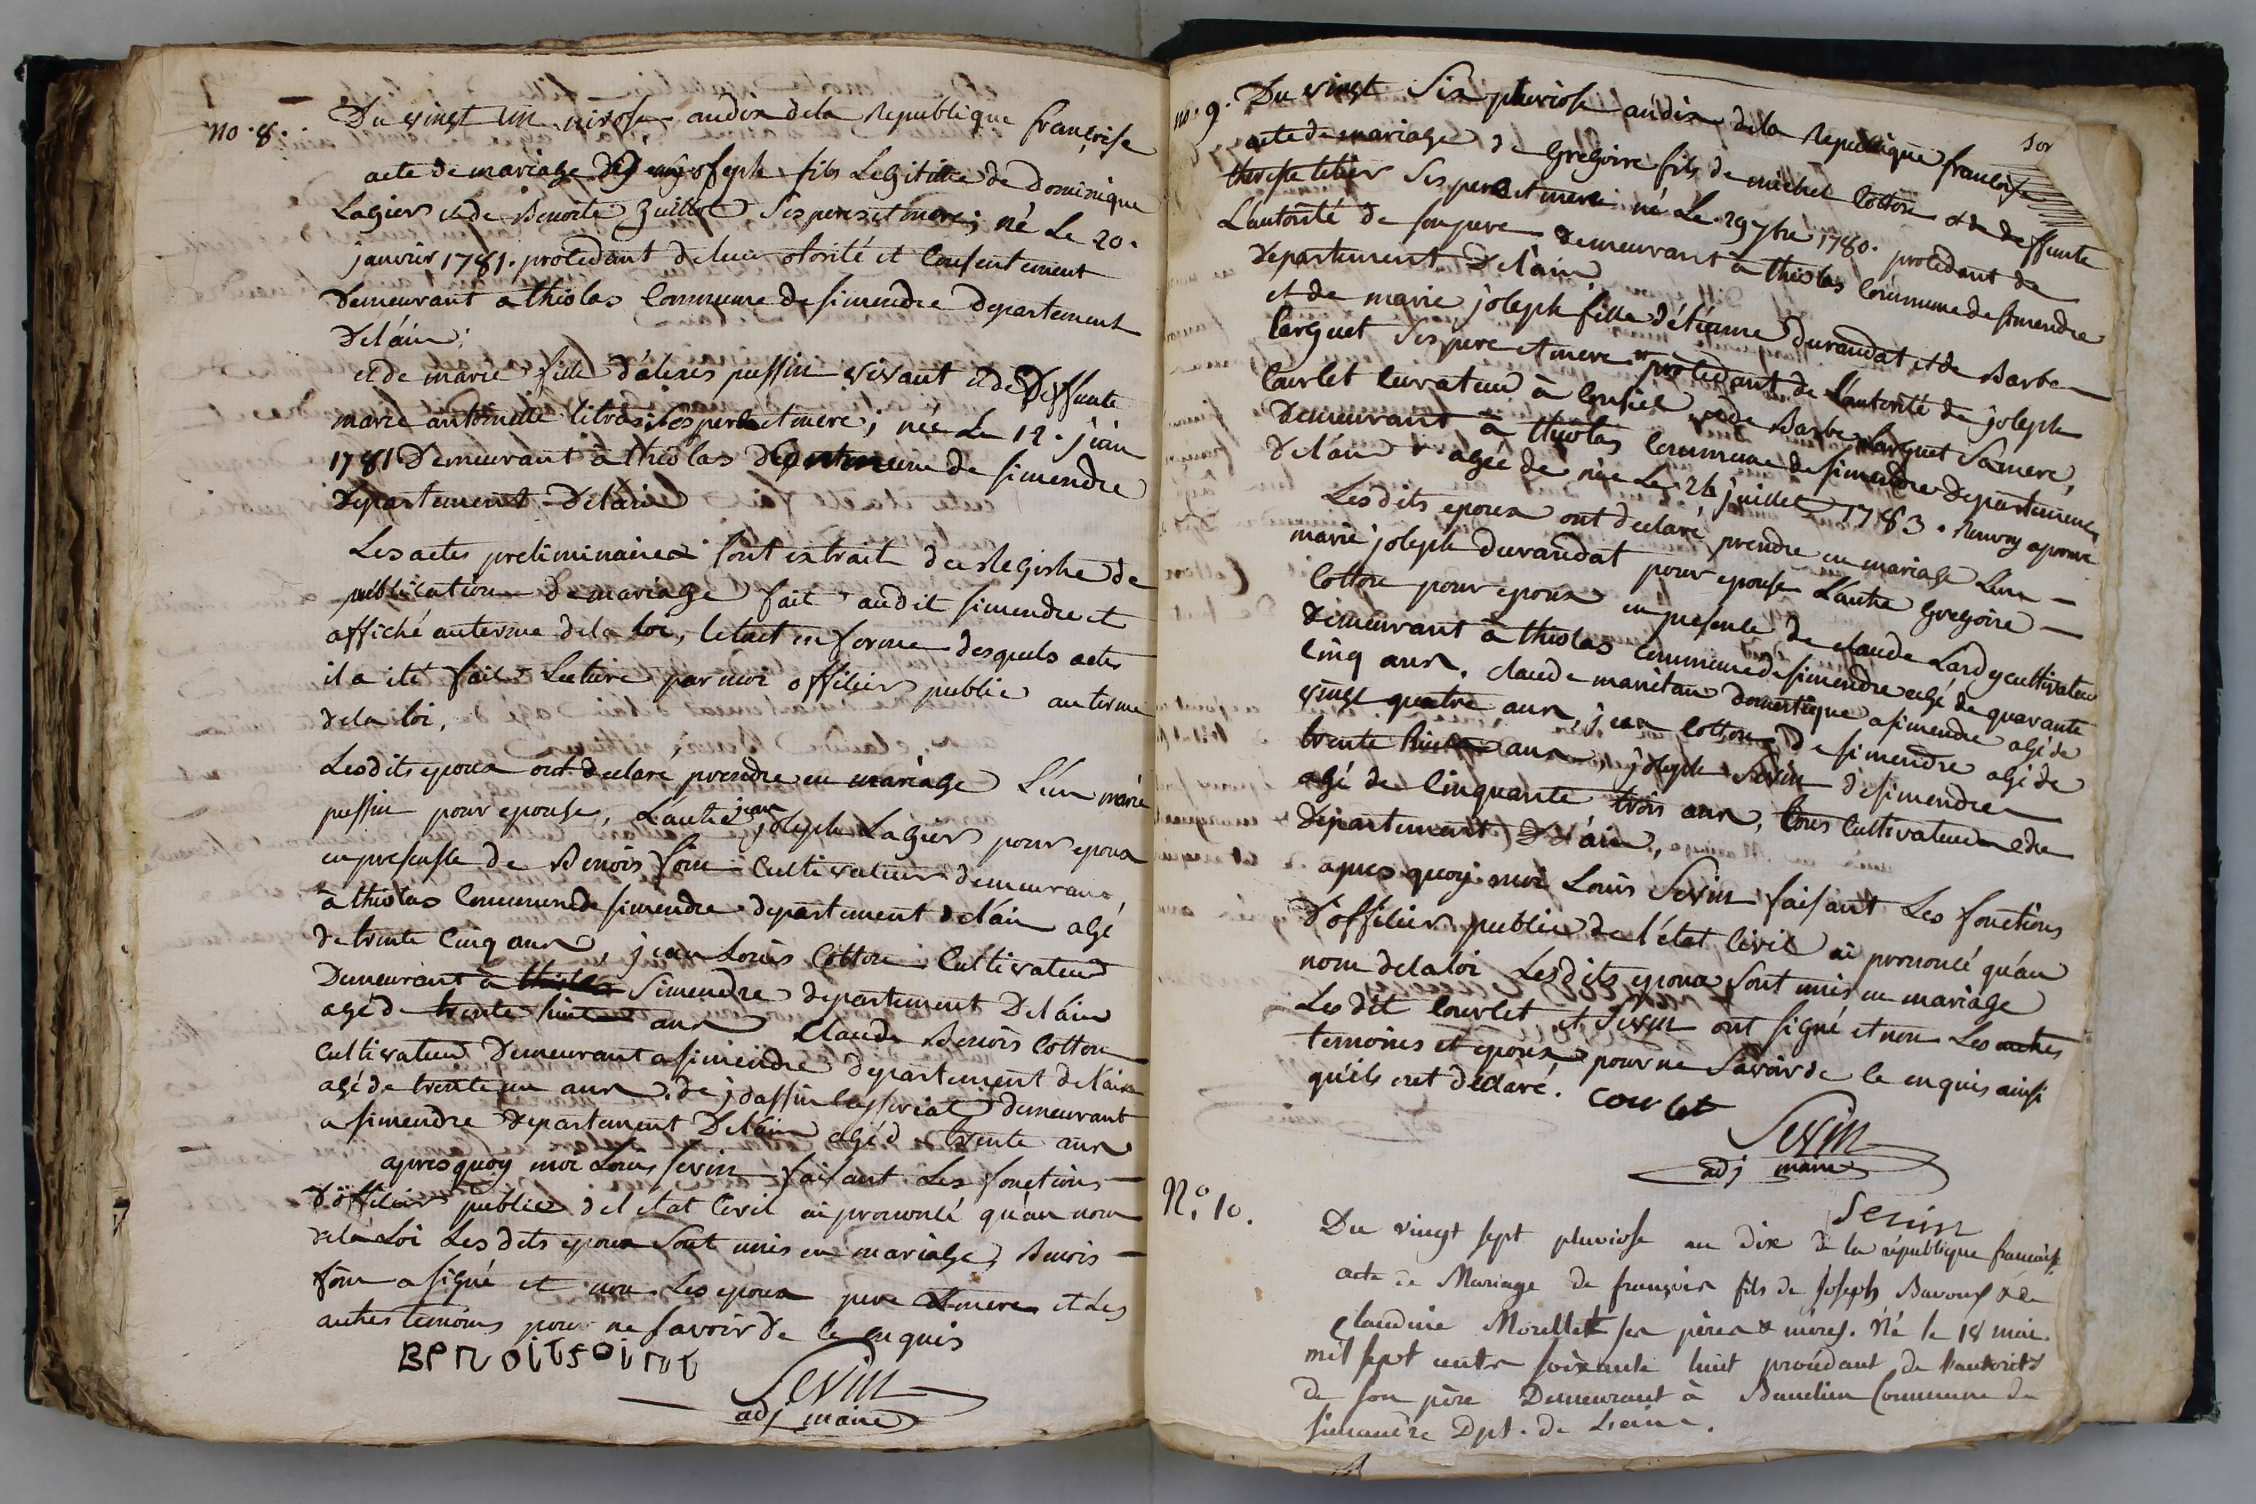 no. 8. Du vingt un nivose an dix de la Republique françoise
acte de mariage de jean joseph fils Legitime de dominique
Lagier et de Benoite guillot ses pere et mere; né Le 20.
janvier 1781. procedant de leur otorité et Consentement
Demeurant a thiolas Commune de simendre Departement
Delain;
et de marie fille d'alexis puffin vivant et de Deffunte
marie antoinette ses pere et mere; née Le 12. juin
1781 Demeurant à thiolas Commune de simendre
Departement Delain
Les actes preliminaires sont extrait du Registre de
publication de mariage fait audit simendre et
affiché au terme de la loi, le tout en forme desquels actes
il a été fait Lecture par moi officier public au terme
de la loi,
Lesdits epoux ont declaré prendre en mariage L'un marie
puffin pour epouse, L'autre jean joseph Lagier pour epoux
en presense de Benois soin Cultivateur demeurant
à thiolas Commune de simendre departement delain agé
de trente Cinq ans, jean Louis Cotton Cultivateur
Demeurant à thiolas Simendre departement Delain
agé de trente huit ans Claude Benois Cotton
Cultivateur Demeurant a simendre departement delain
agé de trente un ans. de demeurant
a simendre departement Delain agé de trente ans
apres quoy moi Louis sevin faisant Les fonctions
d'officier public de l'etat Civil ai prononcé qu'au nom
de la Loi Lesdits epoux sont unis en mariage, Benois
soin a signé et non Les epoux pere et mere et Les
autres temoins pour ne savoir de ce enquis
BENOITSOINT
Sevin
adj maire
no. 9. Du vingt Six pluviose an dix de la Republique françoise
acte de mariage de Gregoire fils de michel Cotton et de deffunte
therese ses pere et mere né Le 29 7bre 1780. procedant de
L'autorité de son pere demeurant à thiolas Commune de simendre
Departement Delain
et de marie joseph fille d'étienne durandat et de Barbe
larguet ses pere et mere procedant de L'autorité de joseph
Courlet Curateur à Conseil et de Barbe larguet sa mere,
Demeurant à thiolas Commune de simendre departement
Delain agée de née Le 26 juillet 1783.
Lesdits epoux ont declaré prendre en mariage L'un
marie joseph durandat pour epouse L'autre Gregoire
Cotton pour epoux en presence de claude Lardy cultivateur
Demeurant à thiolas commune de simendre agé de quarante
Cinq ans. claude manitan domestique a simendre agé de
vingt quatre ans, jean cotton de simendre agé de
trente huit ans, joseph Sevin de simendre
agé de Cinquante trois ans, tous Cultivateurs edu
Departement Delain,
apres quoy moi Louis Sevin faisant Les fonctions
d'officier public de l'état Civil ai prononcé qu'au
nom de la loi Lesdits epoux sont unis en mariage
Lesdit Courlet et Sevin ont signé et non Les autres
temoins et epoux, pour ne Savoir de ce enquis ainsi
qu'ils ont declaré. Courlet
Sevin
adj maire
Sevin
No. 10. Du vingt sept pluviose an dix de la république francaise
acte de Mariage de françois fils de Joseph Bavoux & de
claudine Morellet ses pères & mères. Né le 18 mai
mil sept cents soixante huit procédant de l'autorité
de son père Demeurant à Commune de
simandre Dpt. de Lain.